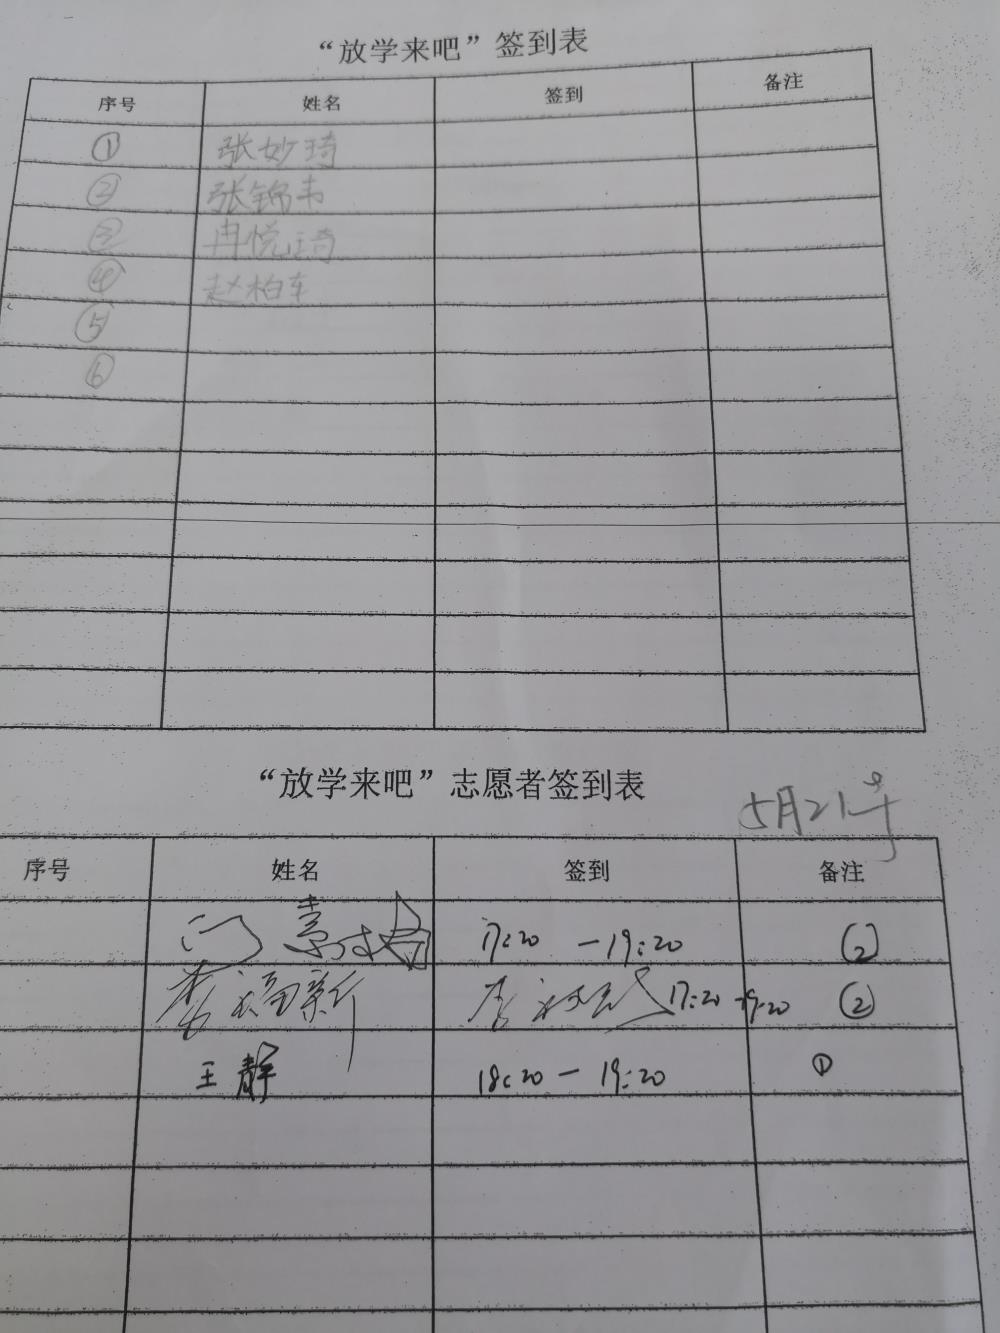 “放学来吧”签到表
序号 姓名 签到 备注
① 张妙琦
② 张锦韦
③ 冉悦琦
④ 赵柏车
⑤
⑥
“放学来吧”志愿者签到表
5月21号
序号 姓名 签到 备注
门 17:20 — 19:20 ②
李福新 李福新 17:20 - 19:20 ②
王静 18:20 — 19:20 ①